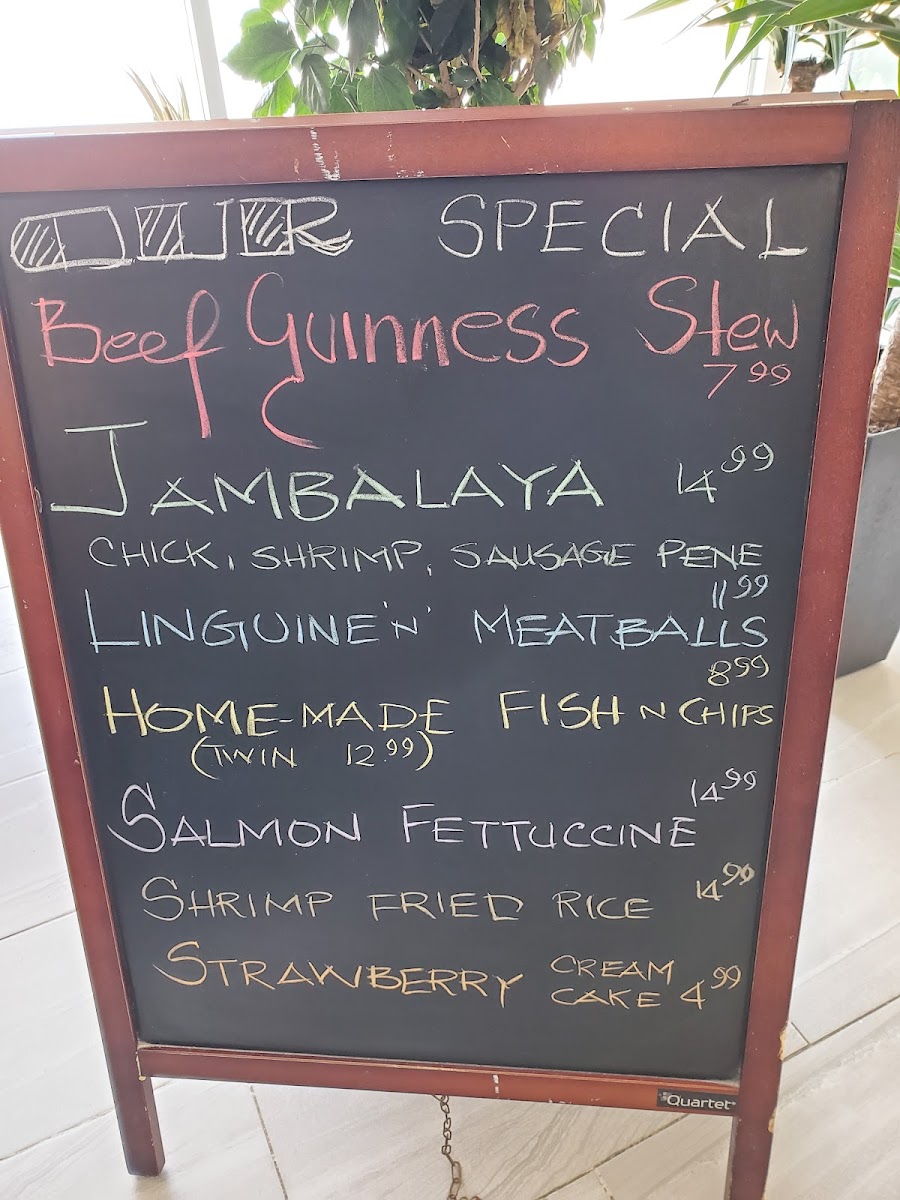 OUR SPECIAL
Beef Guinness Stew
7 99
JAMBALAYA 14 99
CHICK, SHRIMP, SAUSAGE PENE
11 99
LINGUINE 'N' MEATBALLS
8 99
HOME-MADE FISH N CHIPS
(TWIN 12.99)
14 99
SALMON FETTUCCINE
SHRIMP FRIED RICE 14 99
STRAWBERRY CREAM
CAKE 4 99
Quartet